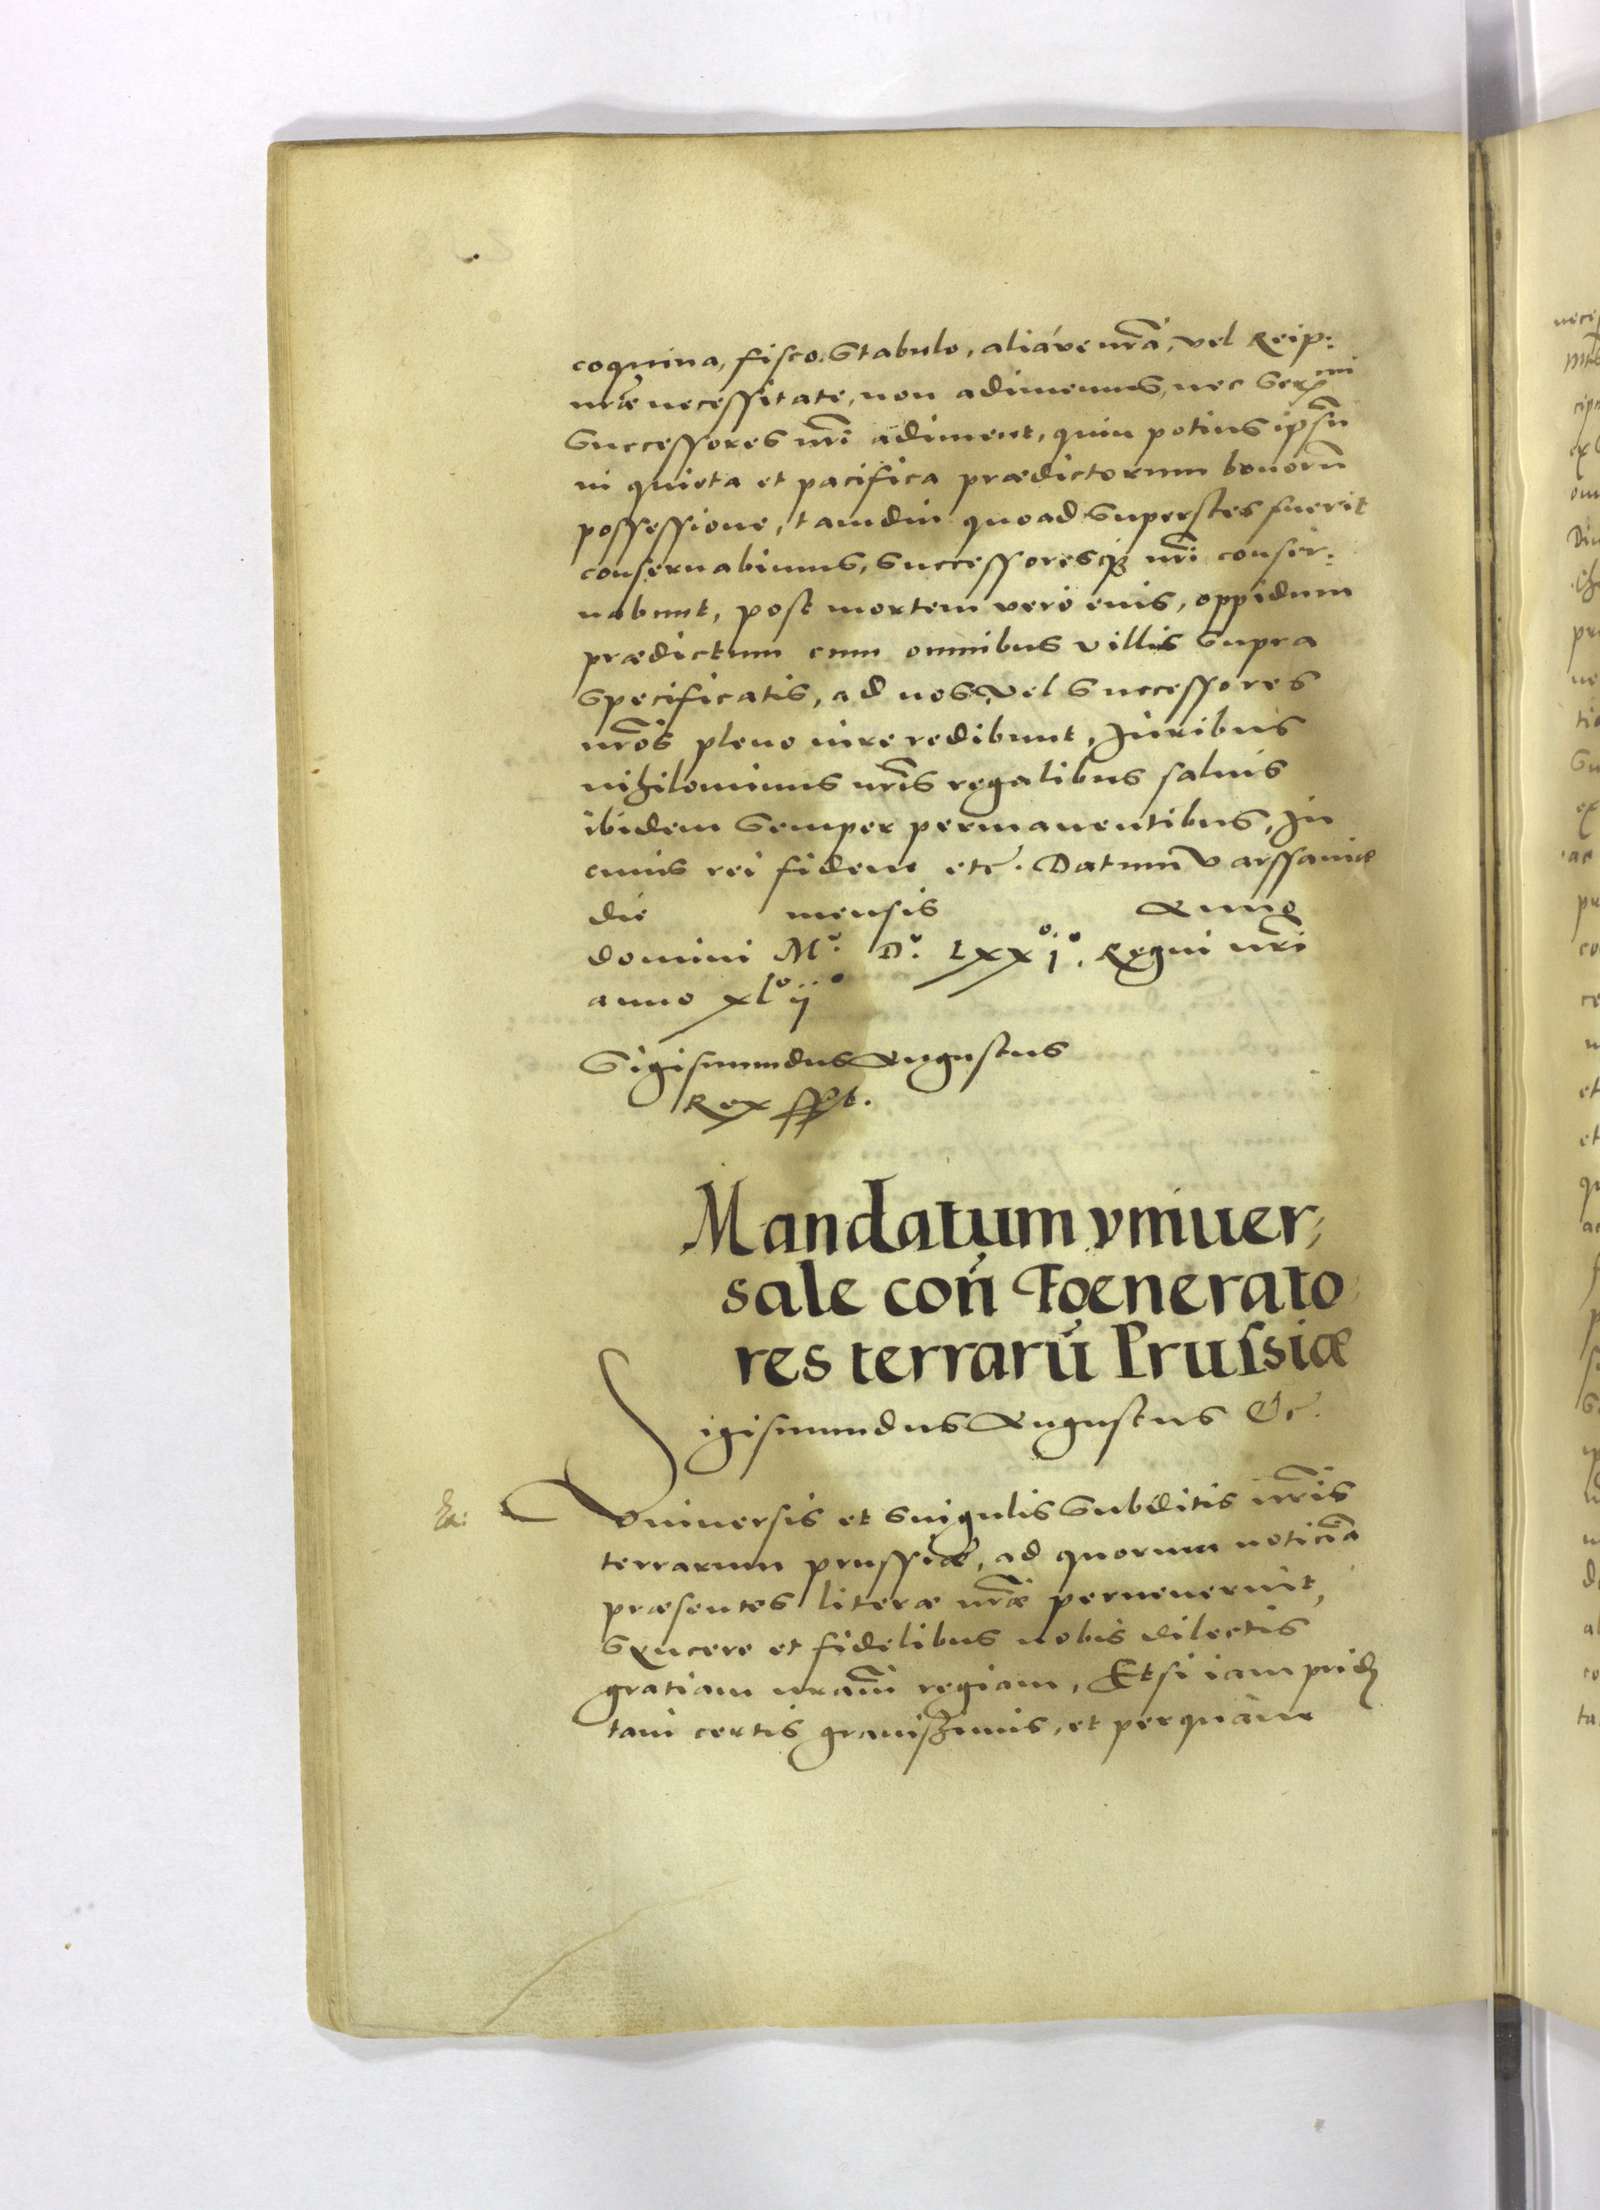 coquina, fisco, Stabulo, aliáve nr̃a, vel Reip:
nr̃æ necessitate, non adimemus, nec Ser^mi
Successores nr̃i adiment, quin potius ip̃sũ
in quieta et pacifica prædictorum bonorũ
possessione, tamdiu quoad Superstes fuerit
conseruabimus, Successoresq₃ nr̃i conser:
uabunt, post mortem vero eius, oppidum
prædictum cum omnibus villis Supra
Specificatis, ad nos vel Successores
nr̃os pleno iure redibunt, Juribus
nihilominus nr̃is regalibus saluis
ibidem Semper permanentibus, In
cuius rei fidem etc̃. Datum Varssauiæ
die mensis Anno
domini M° D° LXX°i° Regni nr̃i
anno xl°ij°
Sigismundus Augustus
Rex sspt.
Mandatum vniuer,
sale con̄ Foenerato
res terrarū Prussiæ
Sigismundus Augustus &c.
Vniuersis et Singulis Subditis nr̃is
terrarum prussiæ, ad quorum noticiã
præsentes literæ nr̃æ peruenerint,
Syncere et fidelibus nobis dilectis
gratiam nram̃ regiam, Etsi iam prid₃
tam certis grauiss̃imis, et perquam